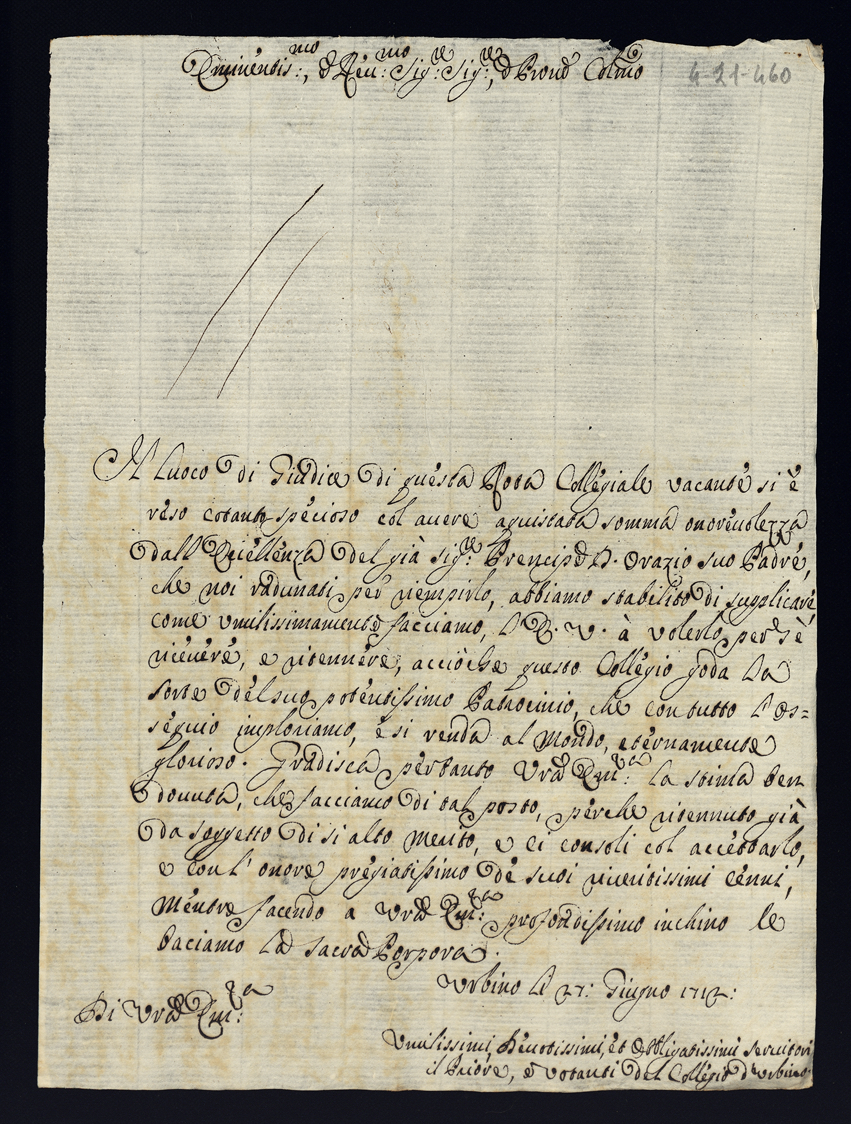 Eminentis:mo, e Reu:mo Sig:re Sig:re, e Prone Colmo
4-21-460
Il luoco di Giudice di questa Rota Collegiale vacante si è
reso cotanto specioso col auere aquistata somma onoreuolezza
dall'Eccellenza del già sig:re Prencipe D. Orazio suo Padre,
che noi radunati per riempirlo, abbiamo stabilito di supplicare,
come umilissimamente facciamo, l'E. V. à volerlo per sè
riceuere, e ritennere, acciòche questo Collegio goda la
sorte del suo potentissimo Patrocinio, che con tutto l'os=
sequio imploriamo, e si renda al Mondo, eternamente
glorioso. Gradisca pertanto Vra Em:za la stima ben
douuta, che facciamo di tal posto, perche ritennuto già
da soggetto di si alto merito, e ci consoli col accettarlo,
e con l'onore pregiatissimo de suoi riueritissimi cenni,
mentre facendo a Vra Em:za profondissimo inchino le
baciamo la sacra Porpora.
Urbino li 27: Giugno 1712:
Di Vra Em:za
Umilissimi, Deuotissimi, et Obligatissimi seruitori
il Priore, e Votanti del Collegio d'Urbino